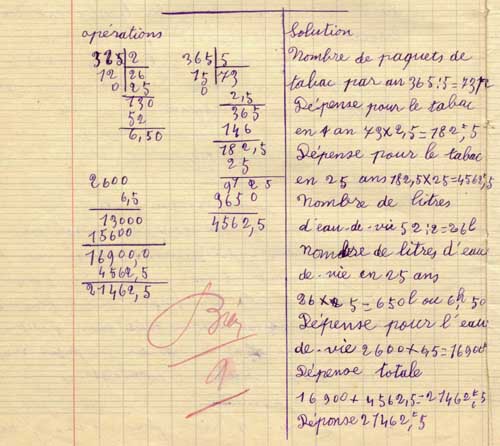 opérations
365 5
12 26 15 73
0 25 0
130 2,5
52 365
6,50 146
182,5
25
9125
3650
4562,5
2600
6,5
13000
15600
16900,0
4562,5
21462,5
Bien
9
Solution
Nombre de paquets de
tabac par an 365:5=73p
Dépense pour le tabac
en 1 an 73×2,5=182f,5
Dépense pour le tabac
en 25 ans 182,5×25=4562f,5
Nombre de litres
d'eau-de-vie 52:2=26l
Nombre de litres d'eau
de-vie en 25 ans
26×25=650l ou 6h,50
Dépense pour l'eau
de-vie 2600×
Dépense totale
16900+4562,5=21462f,5
Réponse 21462f,5